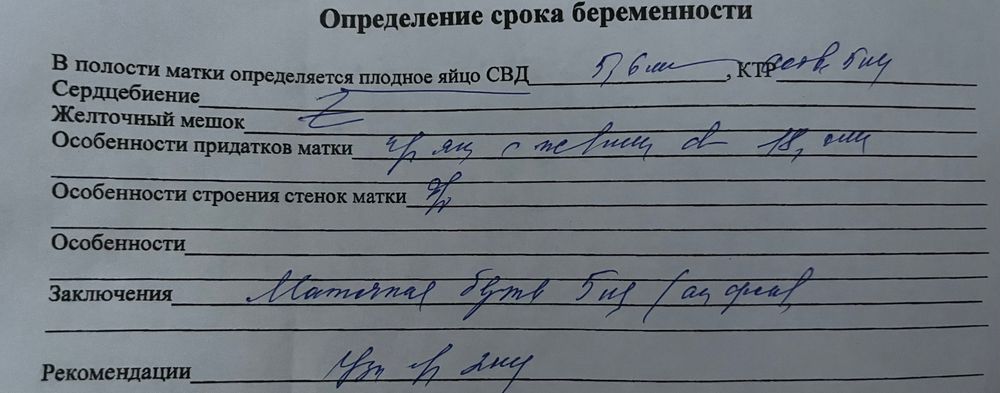 Определение срока беременности
В полости матки определяется плодное яйцо СВД 5,6 мм, КТР соотв. 5 нед
Сердцебиение
Желточный мешок
Особенности придатков матки 18, мм
Особенности строения стенок матки
Особенности
Заключения Маточная 5 нед
Рекомендации Узи 2 нед